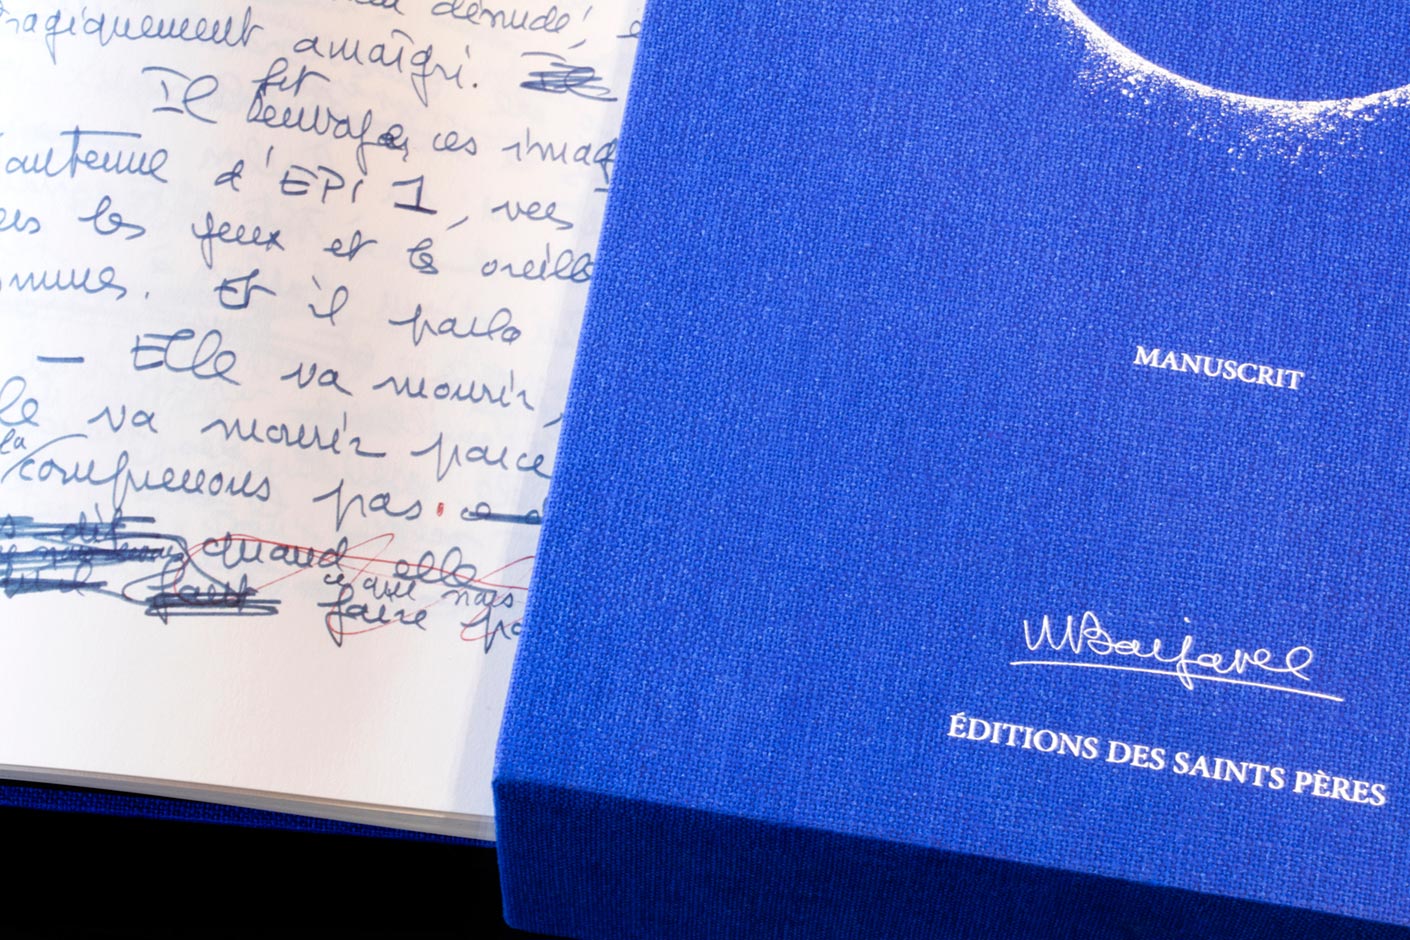 dénudé, e
tragiquement amaigri.
fit
Il ces imag
antenne d'EPI 1, vers
les yeux et les oreille
Et il parla
— Elle va mourir,
va mourir parce
la
comprenons pas.
quand elle
ce que nous
faire
MANUSCRIT
MBarjavel
ÉDITIONS DES SAINTS PÈRES